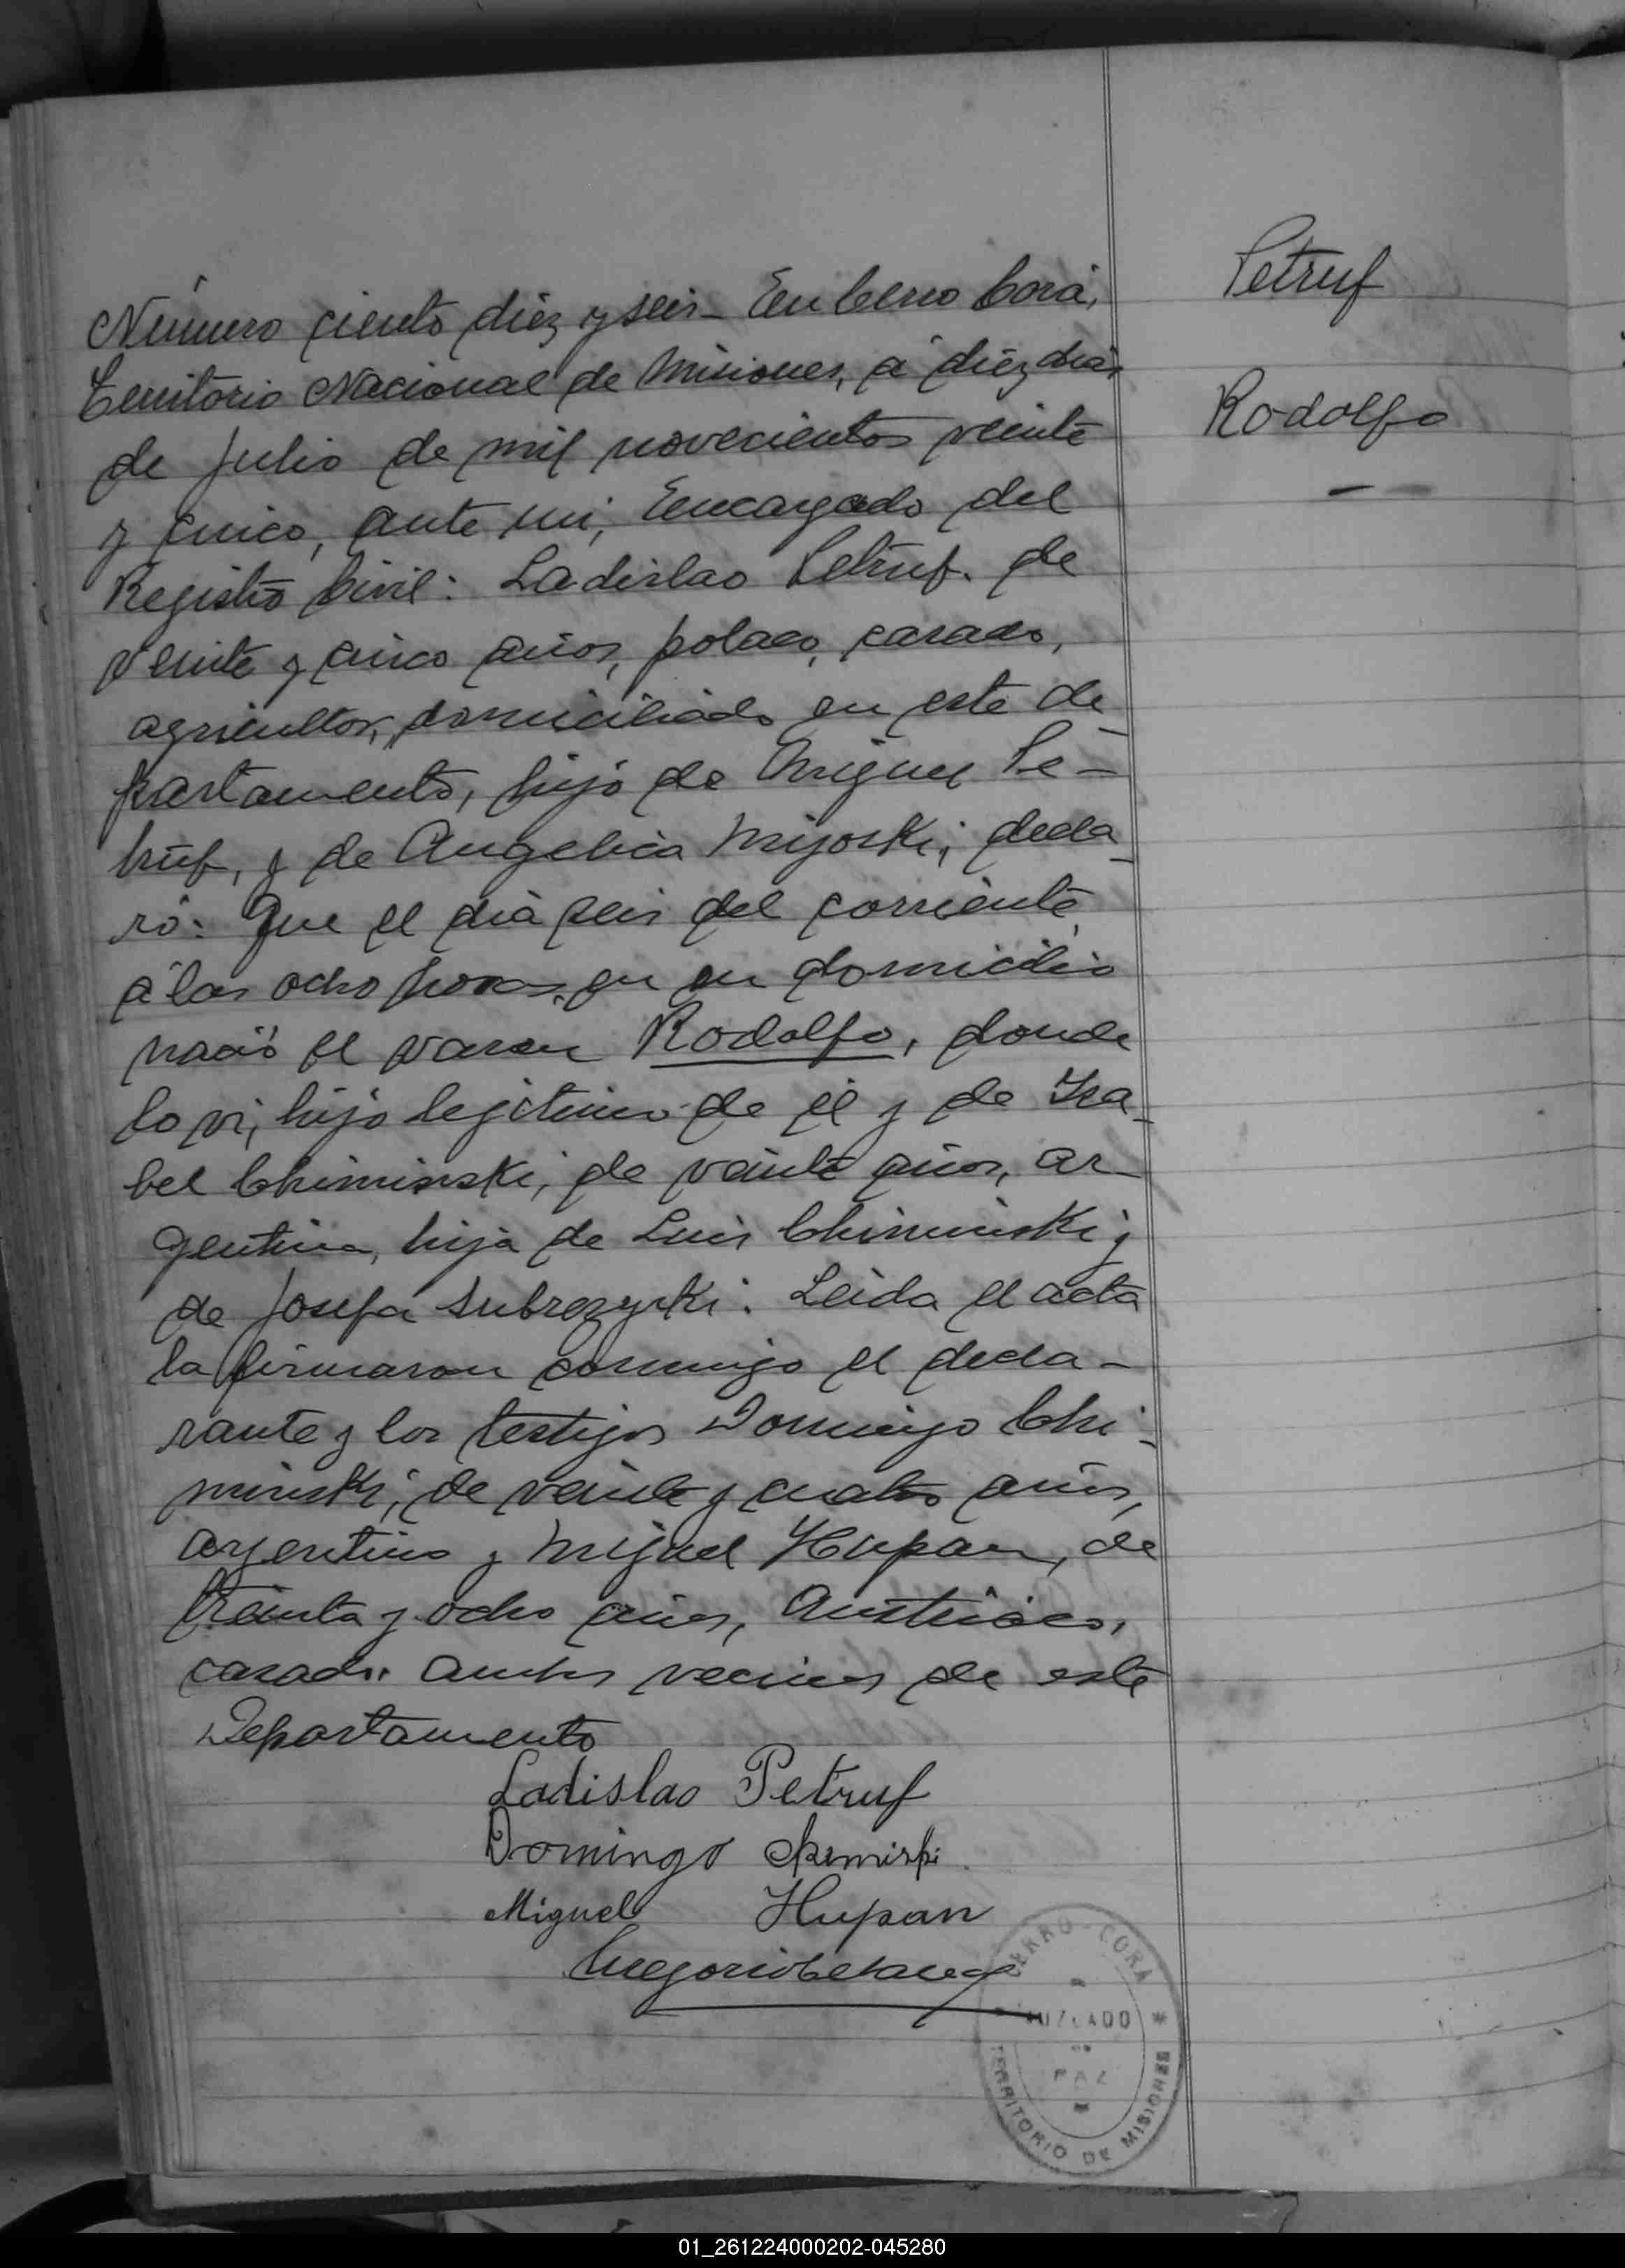 Número ciento diéz y seis_ En Cerro Corá,
Territorio Nacional de Misiones, á diéz dias
de Julio de mil novecientos veinte
y cinco, ante mi, Encargado del
Registro Civil: Ladislao Petruf. de
veinte y cinco años, polaco, casado,
agricultor, domiciliado en este de_
partamento, hijo de Miguel Pe_
truf, y de Angelica Mijoski; decla_
ró: Que el dia seis del corriente
á las ocho horas, en su domicilio
nació el varon Rodolfo, donde
lo vi, hijo legitimo de él y de Isa_
bel Chiminski, de veinte años, ar_
gentina, hija de Luis Chiminski y
de Josefa Subrezyski. Leida el acta
la firmaron conmigo el decla_
rante y los testigos Domingo Chi_
minski, de veinte y cuatro años,
argentino y Miguel Hupan, de
treinta y ocho años, Austriaco,
casado. Ambos vecinos de este
Departamento
Ladislao Petruf
Domingo
Miguel Hupan
Gregorio
Petruf
Rodolfo
CERRO-CORÁ
JUZGADO
DE
PAZ
TERRITORIO DE MISIONES
01_261224000202-045280